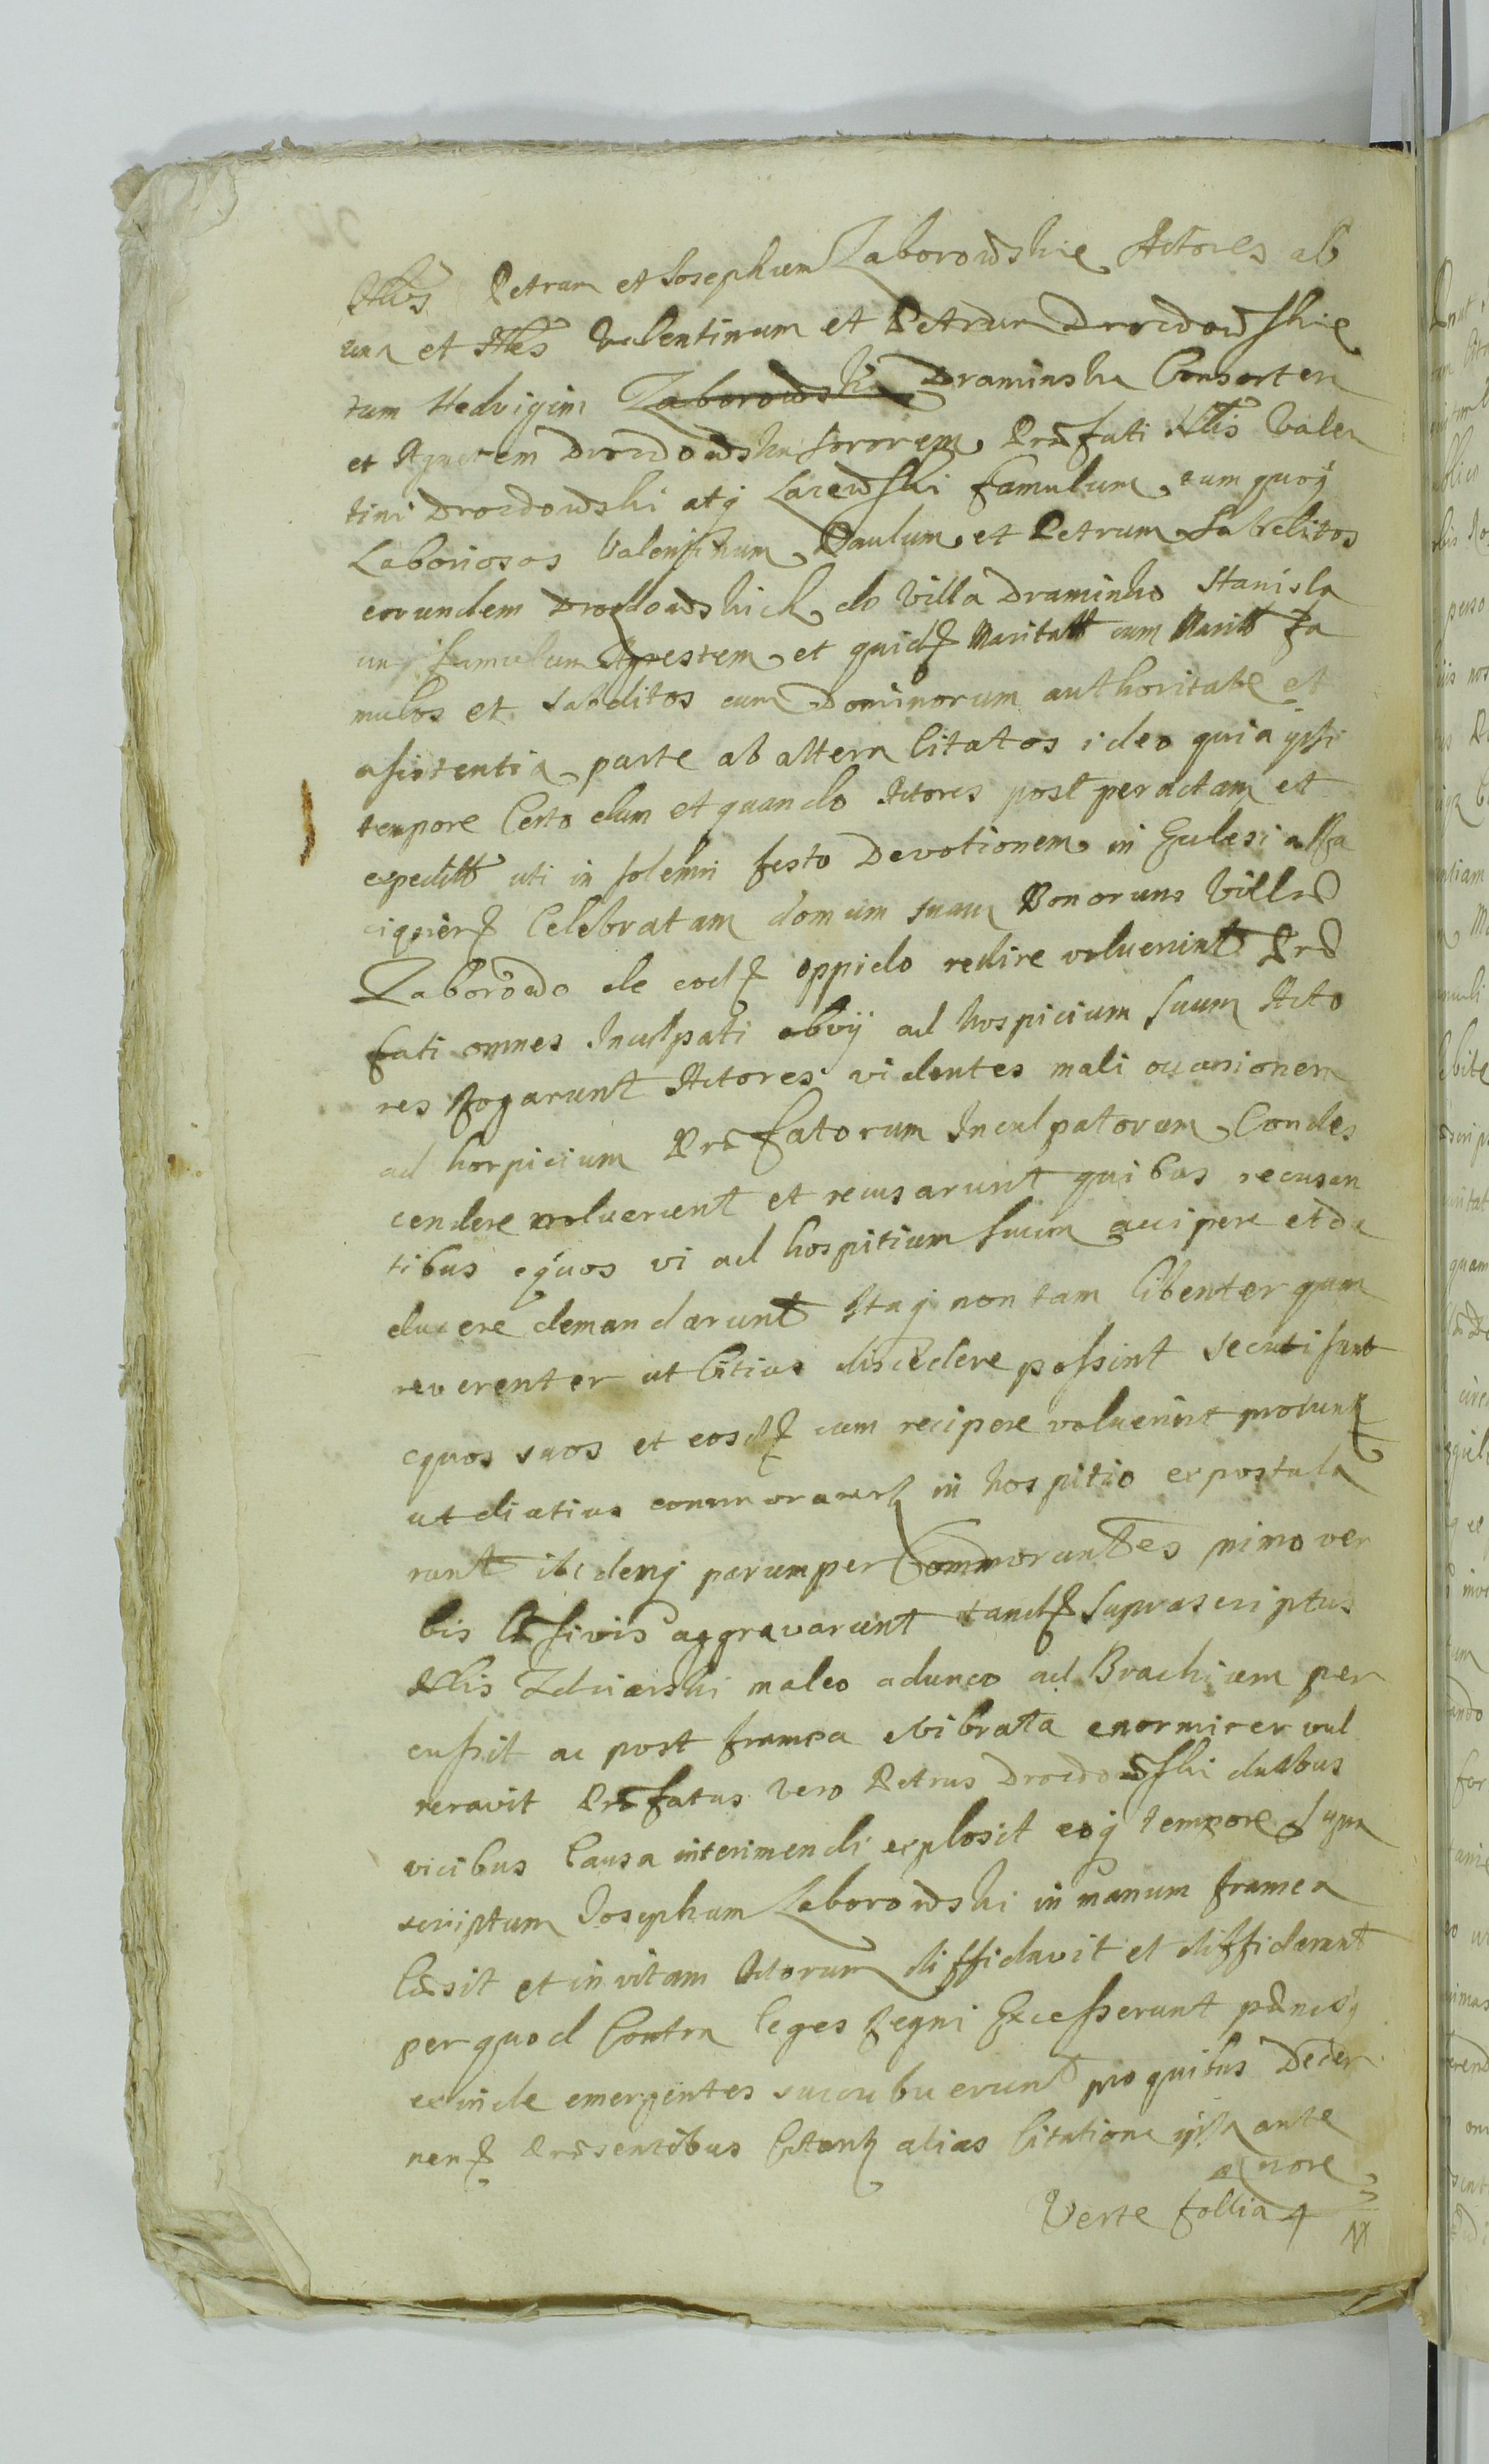 Nbs Petrum et Josephum Zaborowskie Actores ab
una et Nbs Valentinum et Petrum Drozdowskie
tum Hedvigim Zaborowska Draminska Consortem
et Agnetem Drozdowska sororem Præfati Nlis Valen
tini Drozdowski atq Lazewski famulum, eumquoq
Laboriosos Valentinum, Paulum et Petrum Subditos
eorundem Drozdowskich do Villa Draminko Stanisla
um famulum Agrestem et quidz Maritatt cum Maritt Fa
mulos et Subditos cum Dominorum authoritate et
assistentia parte ab altera Citatos ideo quia ipsi
tempore Certo dum et quando Actores post peractam et
expeditt uti in solemni festo Devotionem in Eclesia
Celebratam domum suam Bonorum Villæ
Zaborowo de eodz oppido redire voluerint Præ
fati omnes Inculpati obvÿ ad hospicium suum Acto
res Rogarunt Actores videntes mali occasionem
ad hospicium Præfatorum Inculpatorum Condes
cendere noluerunt et recusarunt quibus recusan
tibus equos vi ad hospitium suum accipere et de
ducere demandarunt Itaq non tam libenter quam
reverenter ut Citius discedere possint secuti sunt
equos suos et eosdz cum recipere voluerint
ut diutius in hospitio expostula
runt ibidenq parumper Commorantes nimo ver
bis læsivis aggravarunt tandz Supra scriptus
Nlis Zdziarski maleo adunco ad Brachium per
cussit ac post framea evibrata enormiter vul
neravit Præfatus vero Petrus Drozdowski duabus
vicibus Causa interimendi explosit eoq tempore Supra
scriptum Josephum Zaborowski in manum framea
læsit et in vitam Actorum diffidavit et diffidarunt
per quod Contra leges Regni Excesserunt pænasq
exinde emergentes succubuerunt pro quibus Decer
nenz Præsentibus alias Citatione ipsa ante
Verte follia